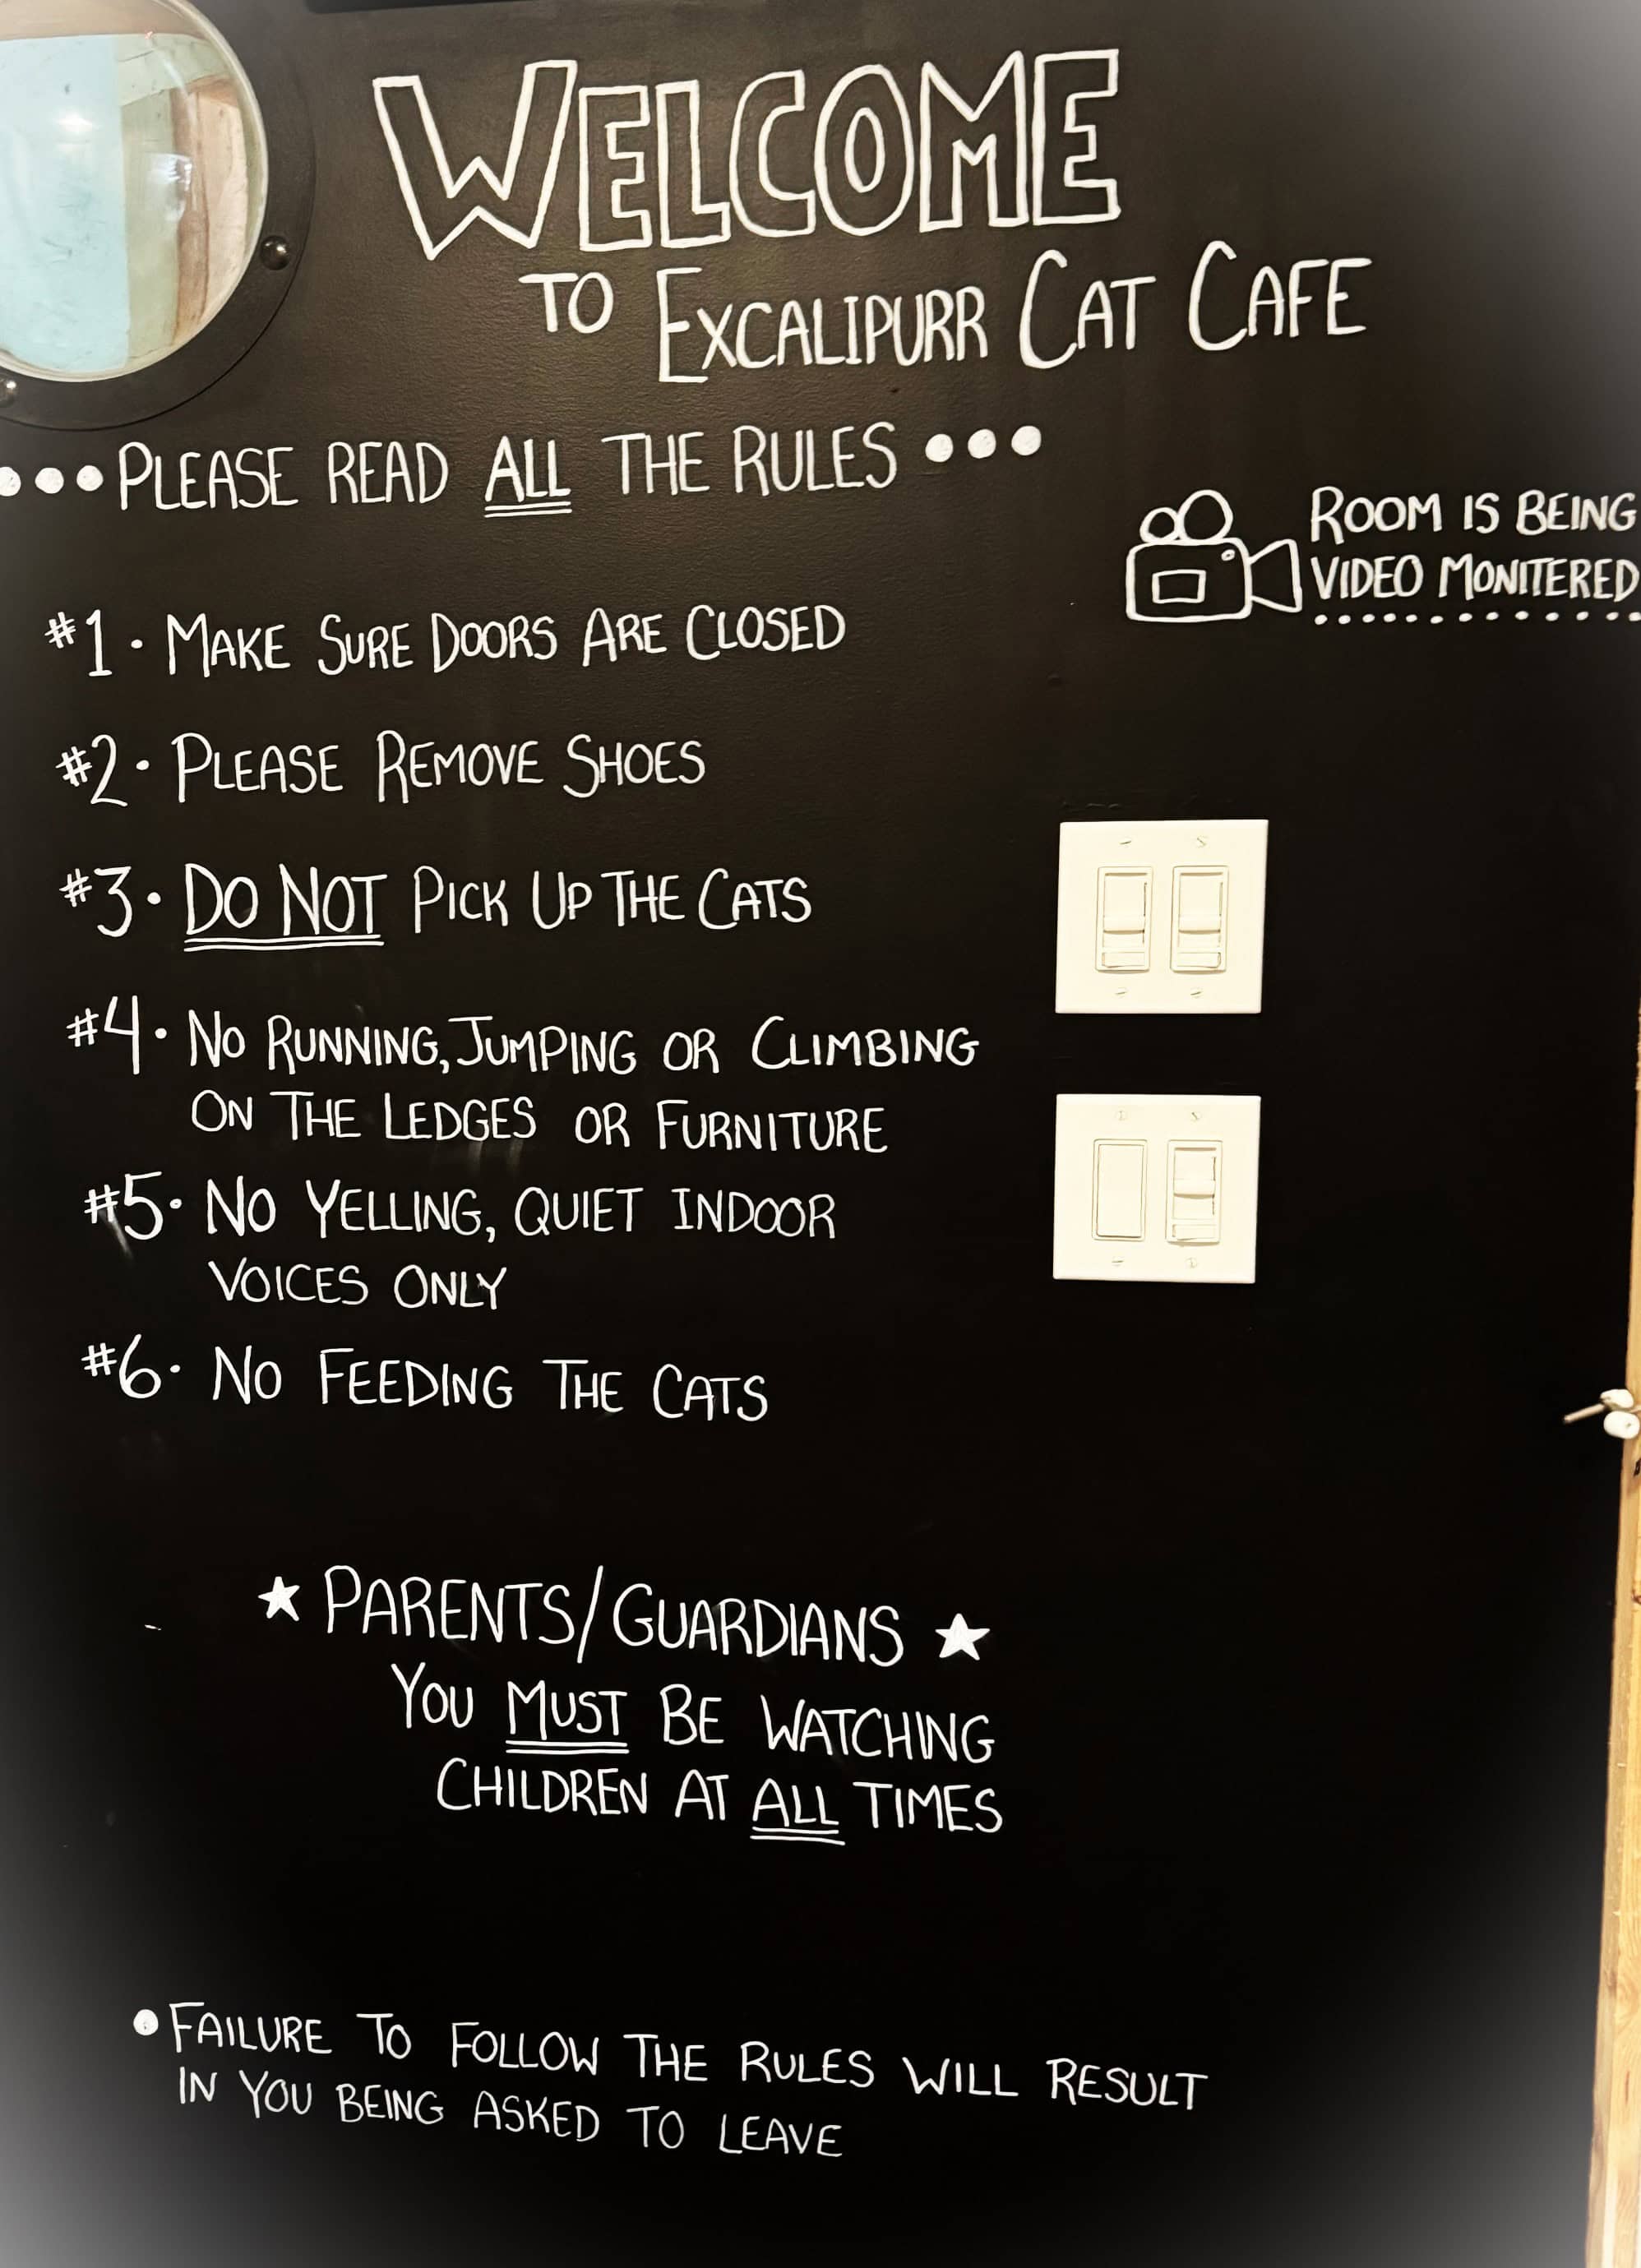 WELCOME
TO EXCALIPURR CAT CAFE
•••PLEASE READ ALL THE RULES•••
ROOM IS BEING
VIDEO MONITERED
#1• MAKE SURE DOORS ARE CLOSED
#2• PLEASE REMOVE SHOES
#3• DO NOT PICK UP THE CATS
#4• NO RUNNING, JUMPING OR CLIMBING
ON THE LEDGES OR FURNITURE
#5• NO YELLING, QUIET INDOOR
VOICES ONLY
#6• NO FEEDING THE CATS
★ PARENTS/GUARDIANS ★
YOU MUST BE WATCHING
CHILDREN AT ALL TIMES
• FAILURE TO FOLLOW THE RULES WILL RESULT
IN YOU BEING ASKED TO LEAVE